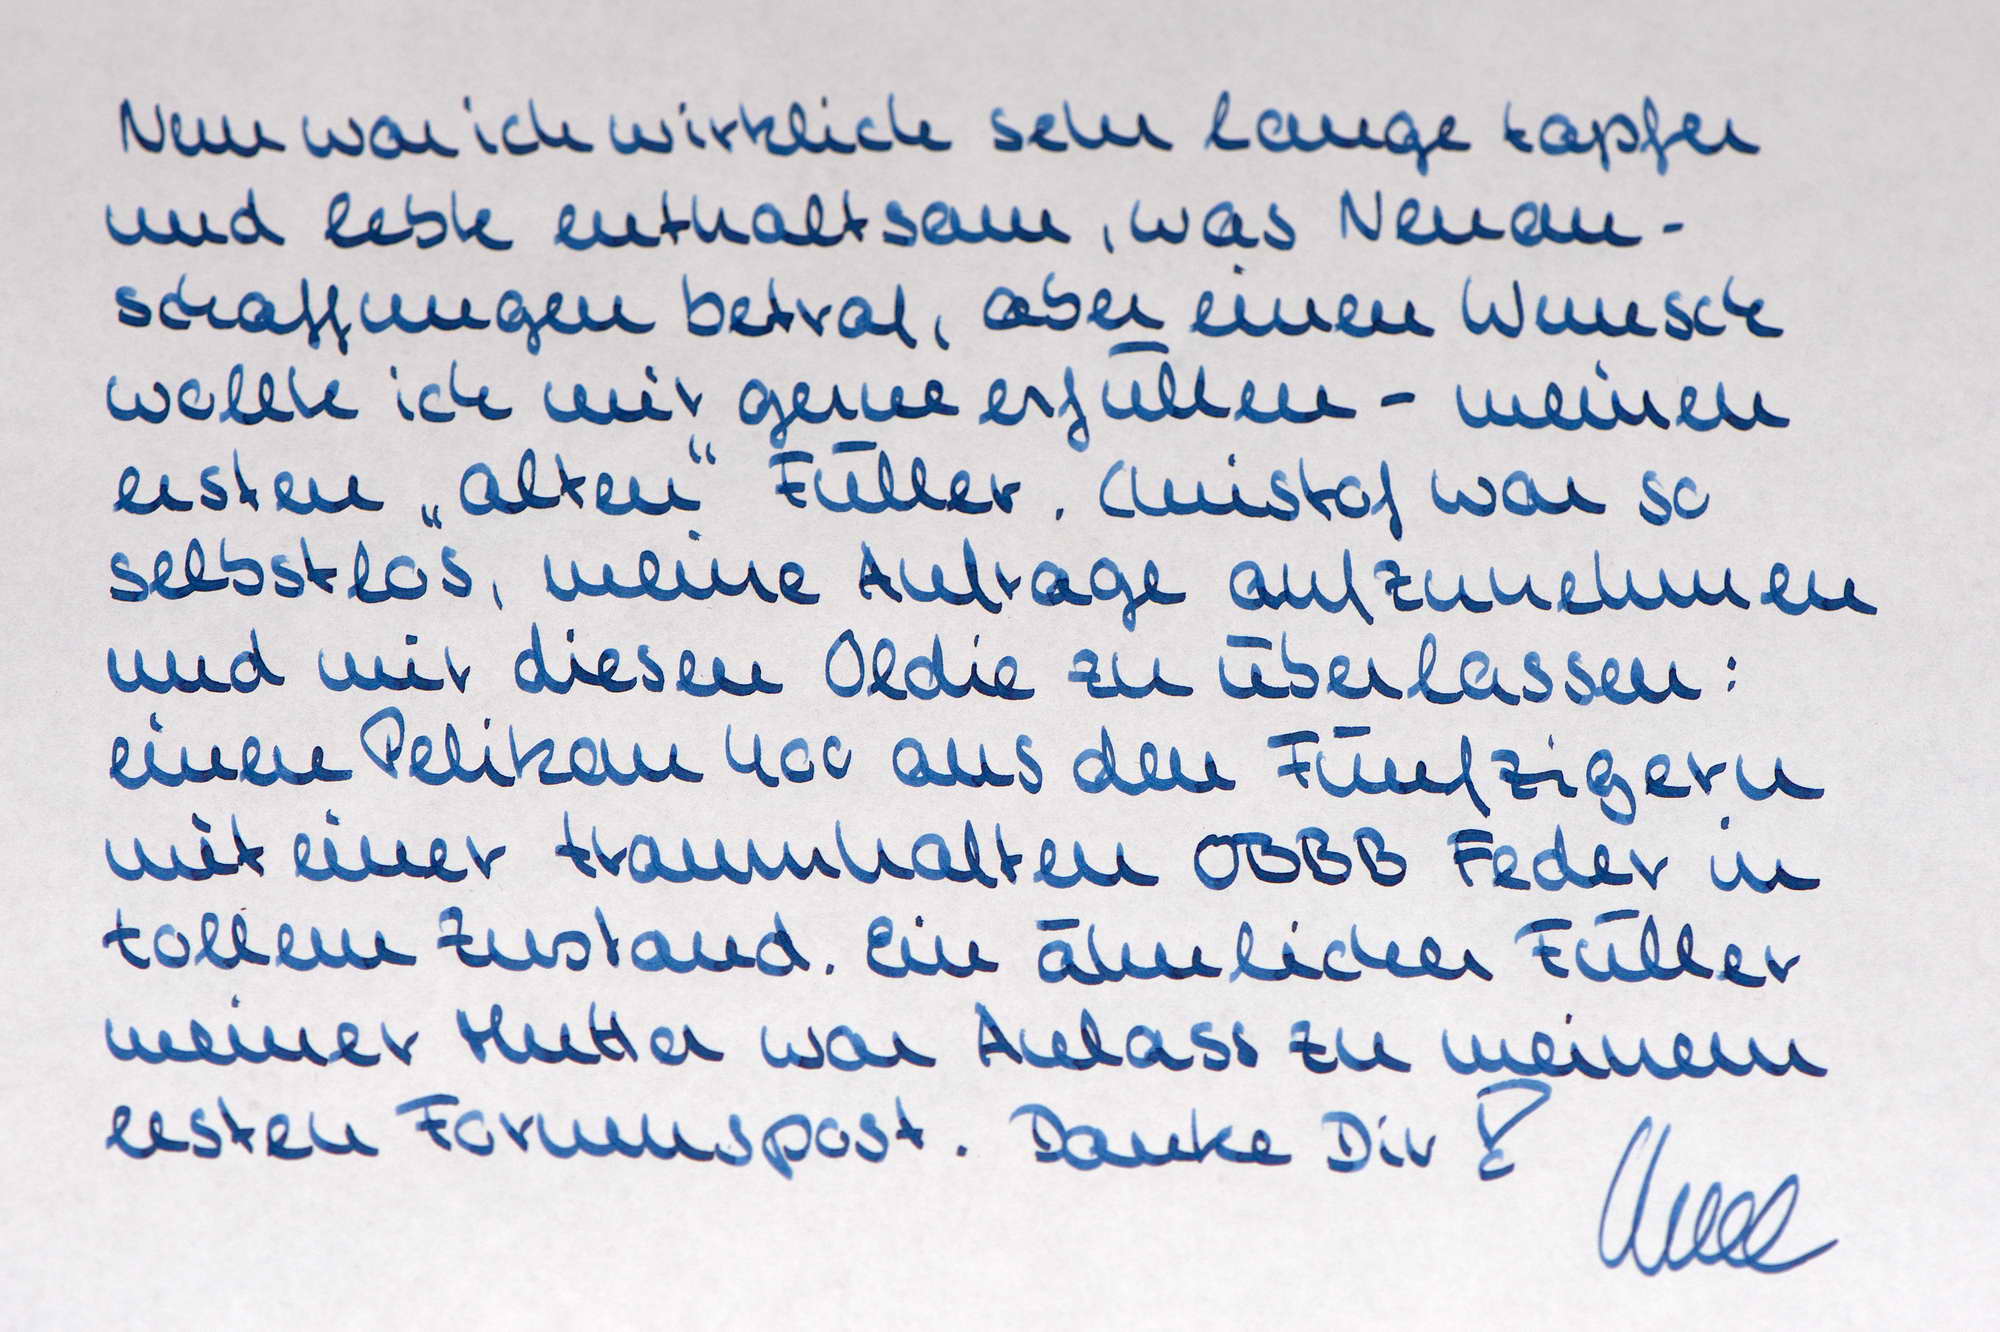 Nun war ich wirklich sehr lange tapfer
und lebte enthaltsam, was Neuan-
schaffungen betraf, aber einen Wunsch
wollte ich mir gerne erfüllen - meinen
ersten „alten“ Füller. Christof war so
selbstlos, meine Anfrage aufzunehmen
und mir diesen Oldie zu überlassen:
einen Pelikan 400 aus den Fünfzigern
mit einer traumhaften OBBB Feder in
tollem Zustand. Ein ähnlicher Füller
meiner Mutter war Anlass zu meinem
ersten Forumspost. Danke Dir!